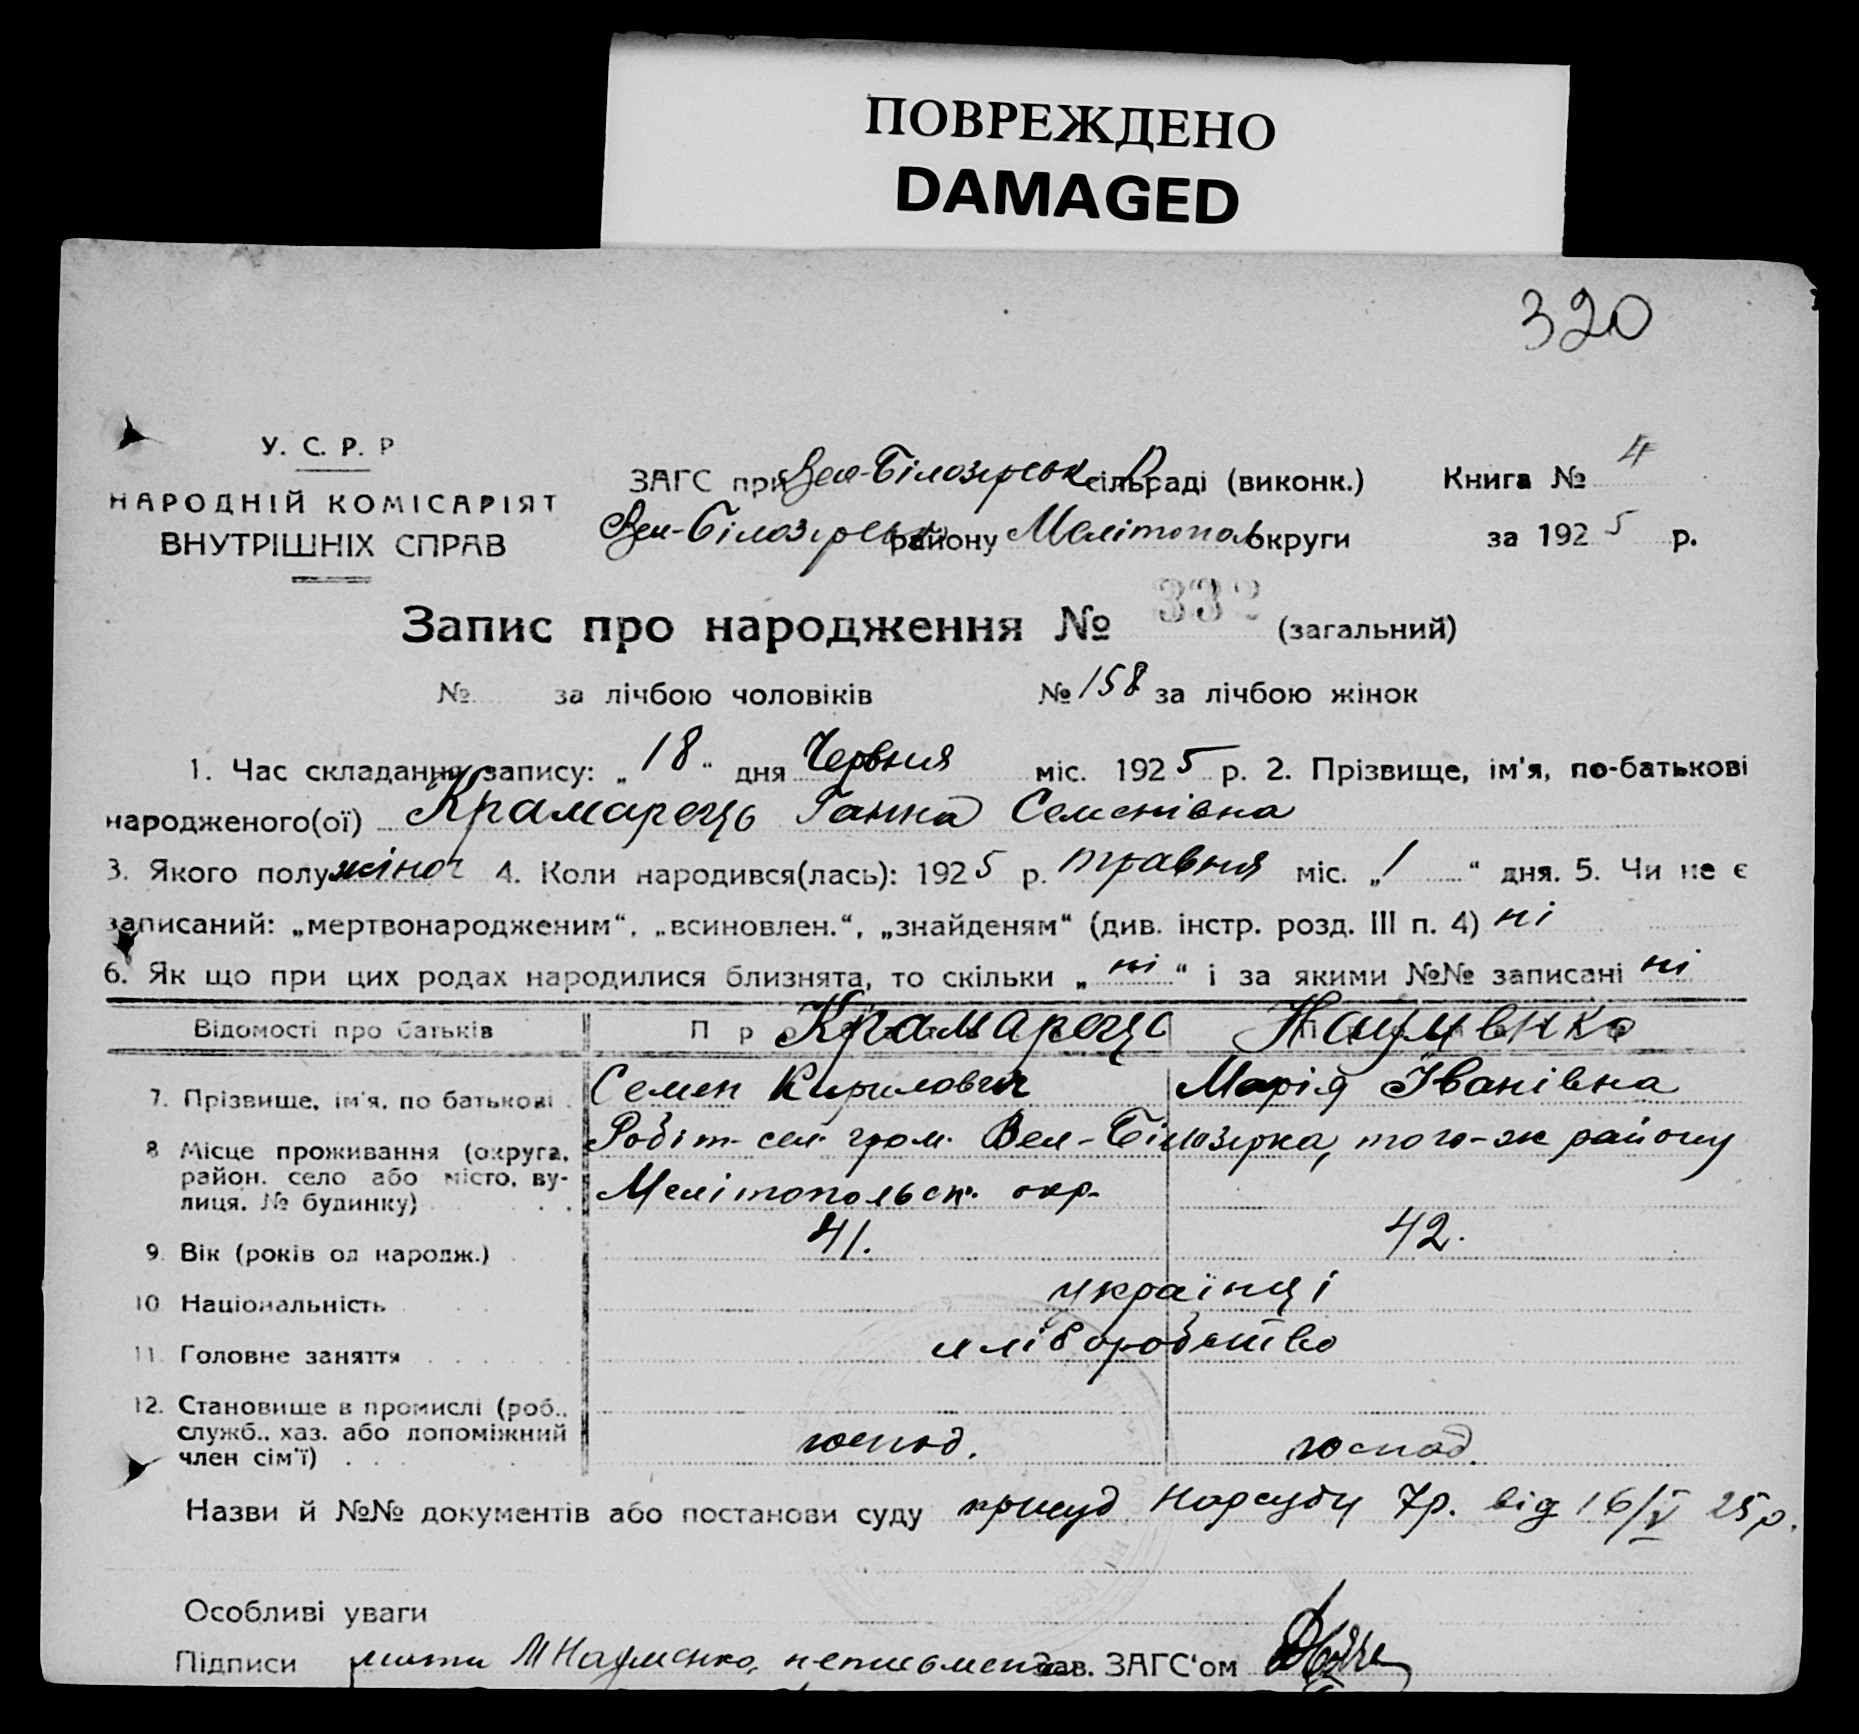 ПОВРЕЖДЕНО
DAMAGED
320
У. С. Р. Р
НАРОДНІЙ КОМІСАРІЯТ
ВНУТРІШНІХ СПРАВ
ЗАГС при Вел-Білозірськ сільраді (виконк.) Книга № 4
Вел-Білозірськ району Мелітопол округи за 1925 р.
Запис про народження № 332 (загальний)
№ за лічбою чоловіків № 158 за лічбою жінок
1. Час складання запису: „18" дня Червня міс. 1925 р. 2. Прізвище, ім'я, по-батькові
народженого(ої) Крамарець Ганна Семенівна
3. Якого полу жіноч 4. Коли народився(лась): 1925 р. травня міс. „1" дня. 5. Чи не є
записаний: „мертвонародженим", „всиновлен.", „знайденям" (див. інстр. розд. III п. 4) ні
6. Як що при цих родах народилися близнята, то скільки „ні" і за якими №№ записані ні
Відомості про батьків П р Крамарець Науменко
7. Прізвище, ім'я, по батькові Семен Кирилович Марія Іванівна
8 Місце проживання (округа, район, село або місто, вулиця, № будинку) Робіт. сел. гром. Вел-Білозірка, того-ж району
Мелітопольськ. окр.
9. Вік (років од народж.) 41. 42.
10 Національність українці
11. Головне заняття хліборобство
12. Становище в промислі (роб., служб., хаз. або допоміжний член сім'ї) господ. господ.
Назви й №№ документів або постанови суду присуд Нарсуду 7р. від 16/V 25 р.
Особливі уваги
Підписи мати М Науменко, неписьменна Зав. ЗАГС'ом